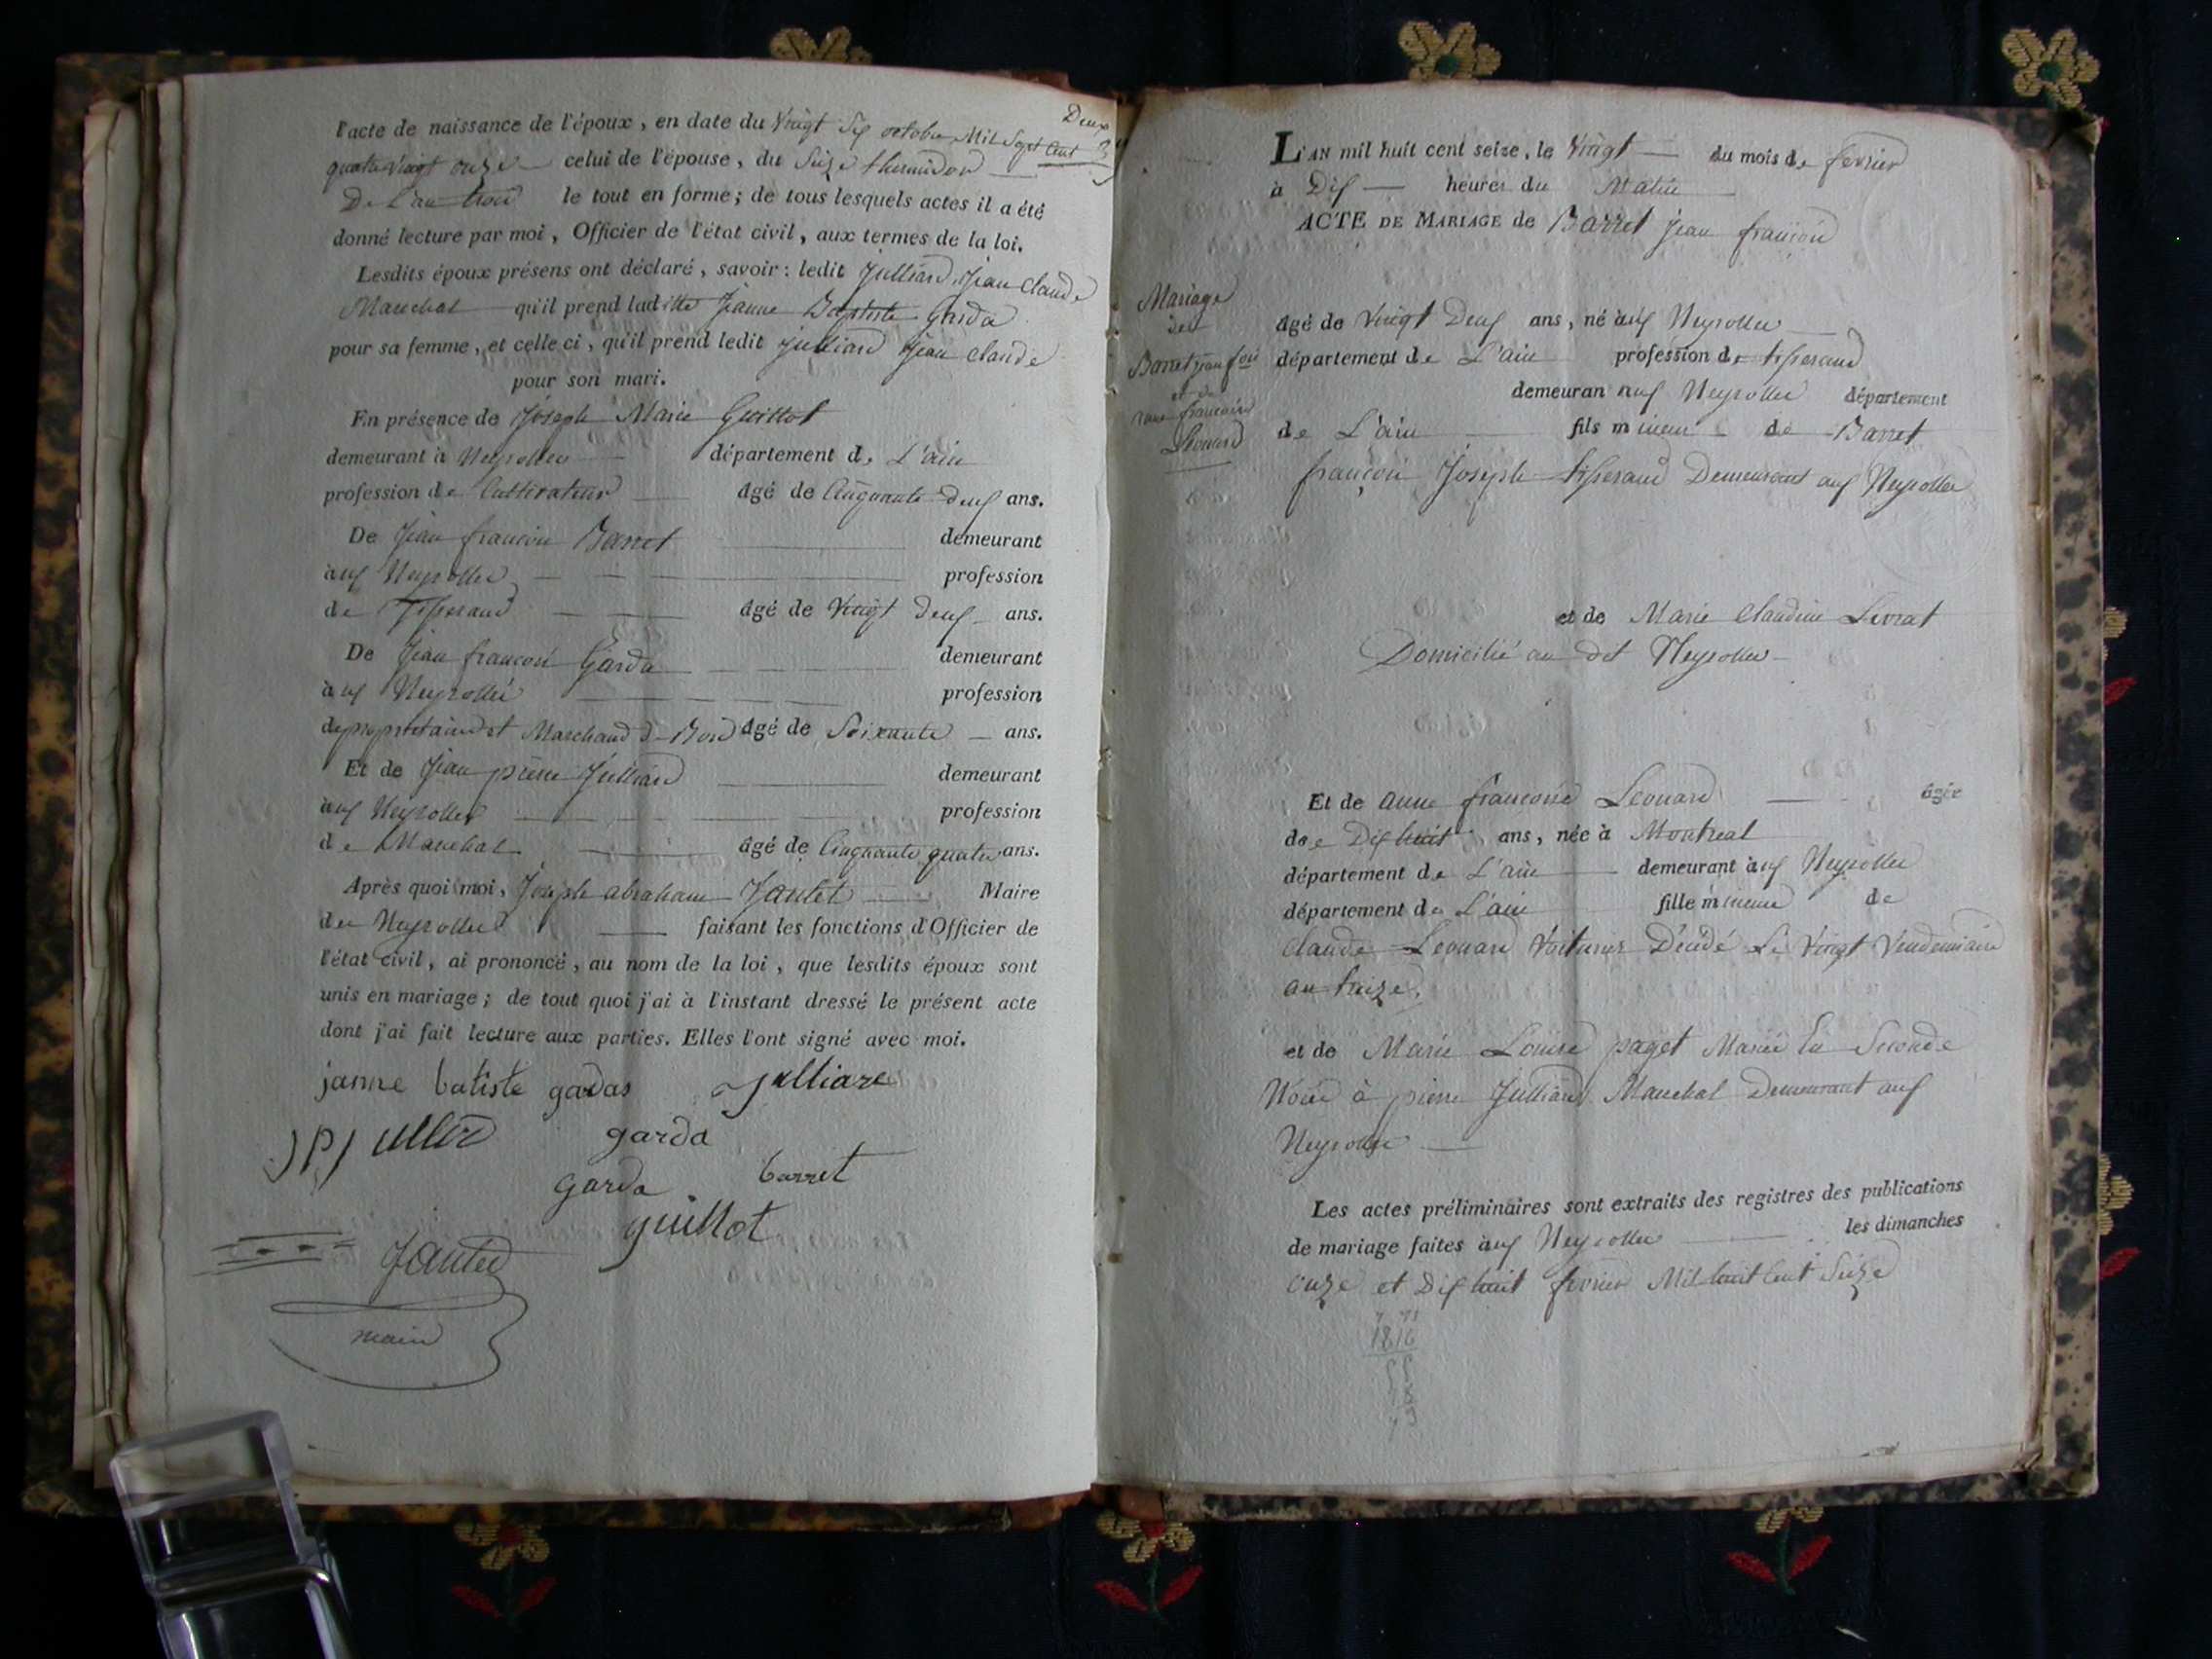 Deux
l'acte de naissance de l'époux, en date du Vingt Six octobre Mil Sept Cent
quatre Vingt onze celui de l'épouse, du Seize thermidor
De L'an trois le tout en forme; de tous lesquels actes il a été
donné lecture par moi, Officier de l'état civil, aux termes de la loi.
Lesdits époux présens ont déclaré, savoir: ledit Julliard Jean Claude
Marechal qu'il prend ladite Jeanne Baptiste Garda
pour sa femme, et celle ci, qu'il prend ledit Julliard Jean Claude
pour son mari.
En présence de Joseph Marie Guillot
demeurant à Neyrolles département de L'ain
profession de Cultivateur âgé de Cinquante deux ans.
De Jean françois Barret demeurant
aux Neyrolles profession
de Tisserand âgé de Vingt deux ans.
De Jean françois Garda demeurant
aux Neyrolles profession
de propriétaire et Marchand d Bois âgé de Soixante ans.
Et de Jean pierre Julliard demeurant
aux Neyrolles profession
de Marechal âgé de Cinquante quatre ans.
Après quoi moi, Joseph abraham Jantet Maire
des Neyrolles faisant les fonctions d'Officier de
l'état civil, ai prononcé, au nom de la loi, que lesdits époux sont
unis en mariage; de tout quoi j'ai à l'instant dressé le présent acte
dont j'ai fait lecture aux parties. Elles l'ont signé avec moi.
janne batiste gadas Julliare
garda
garda barret
guillot
Jantet
maire
L'AN mil huit cent seize, le Vingt du mois de fevrier
à Dix heures du Matin
ACTE DE MARIAGE de Barret Jean françois
Mariage
de
Barret jean fois
et de
anne françoise
Leonard
âgé de Vingt Deux ans, né aux Neyrolles
département de L'ain profession de tisserand
demeuran aux Neyrolles département
de L'ain fils mineur de Barret
françois Joseph tisserand Demeurant aux Neyrolles
et de Marie Claudine Levrat
Domicilié au dit Neyrolles
Et de anne françoise Leonard âgée
de Dix huit ans, née à Montreal
département de L'ain demeurant aux Neyrolles
département de L'ain fille mineure de
Claude Leonard Voiturier Décédé Le Vingt Vendemiaire
an treize.
et de Marie Louise paget Mariée En Seconde
Noce à pierre Julliard Marechal Demeurant aux
Neyrolles
Les actes préliminaires sont extraits des registres des publications
de mariage faites aux Neyrolles les dimanches
onze et Dix huit fevrier Mil huit Cent Seize
1816